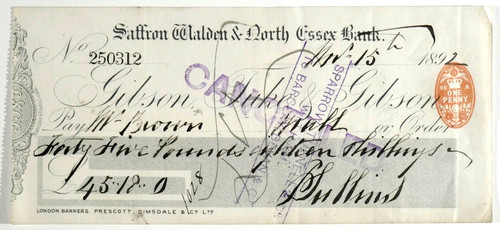 Saffron Walden & North Essex Bank.
No. 250312 Nov. 15th 1892
Gibson Tuke & Gibson
Pay Mr Brown or Order
Forty Five Pounds eighteen Shillings
£45.18.0
1028
ONE PENNY
CANC
SPARROW
BARC
LONDON BANKERS PRESCOTT, DIMSDALE & Co. LTD